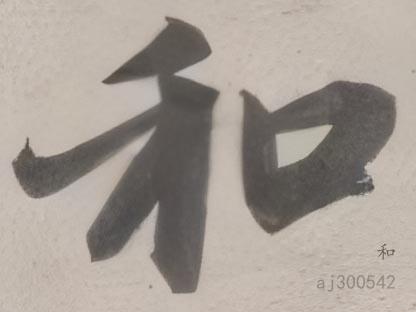 和
和
aj300542